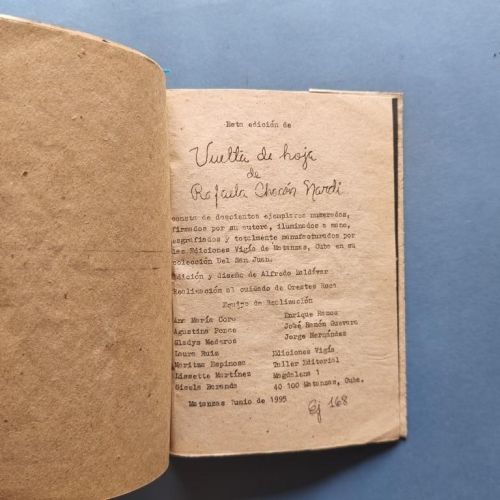 Esta edición de
Vuelta de hoja
de
Rafaela Chacón Nardi
consta de doscientos ejemplares numerados,
firmados por su autora, iluminados a mano,
mesgrafiados y totalmente manufacturados por
las Ediciones Vigía de Matanzas, Cuba en su
colección Del San Juan.
Edición y diseño de Alfredo Zaldívar
Realización al cuidado de Orestes Roca
Equipo de Realización
Ana María Coro
Agustina Ponce
Gladys Mederos
Laura Ruiz
Maritza Espinosa
Lissette Martínez
Gisela Baranda
Enrique Ramos
José Ramón Guevara
Jorge Hernández
Ediciones Vigía
Taller Editorial
Magdalena 1
40 100 Matanzas, Cuba.
Matanzas Junio de 1995
Ej 168